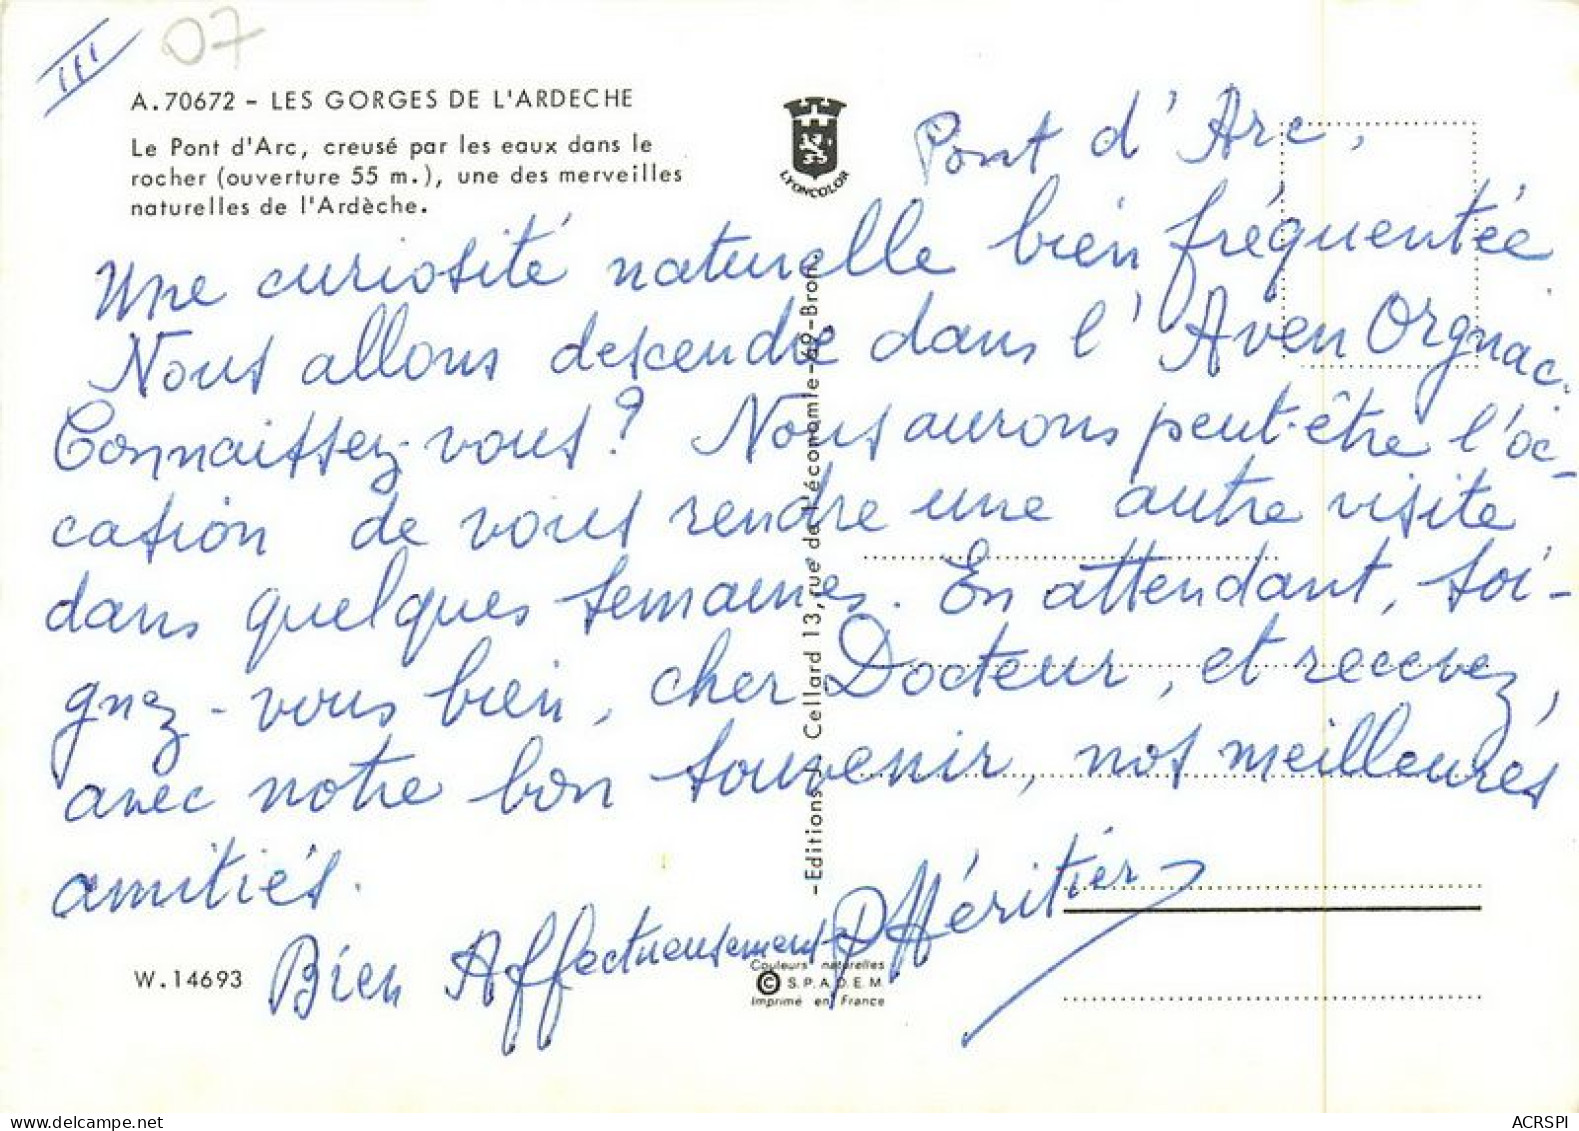 III
07
A. 70672 - LES GORGES DE L'ARDECHE
Le Pont d'Arc, creusé par les eaux dans le
rocher (ouverture 55 m.), une des merveilles
naturelles de l'Ardèche.
LYONCOLOR
Pont d'Arc,
Une curiosité naturelle bien fréquentée
Nous allons descendre dans l'Aven Orgnac.
Connaissez-vous? Nous aurons peut-être l'oc-
casion de vous rendre une autre visite
dans quelques semaines. En attendant, soi-
gnez-vous bien, cher Docteur, et recevez,
avec notre bon souvenir, nos meilleures
amitiés.
Bien Affectueusement
PHéritier
-Editions J. Cellard 13, rue de l'économie-69-Bron
W. 14693
Couleurs naturelles
© S.P.A.D.E.M.
Imprimé en France
ACRSPI